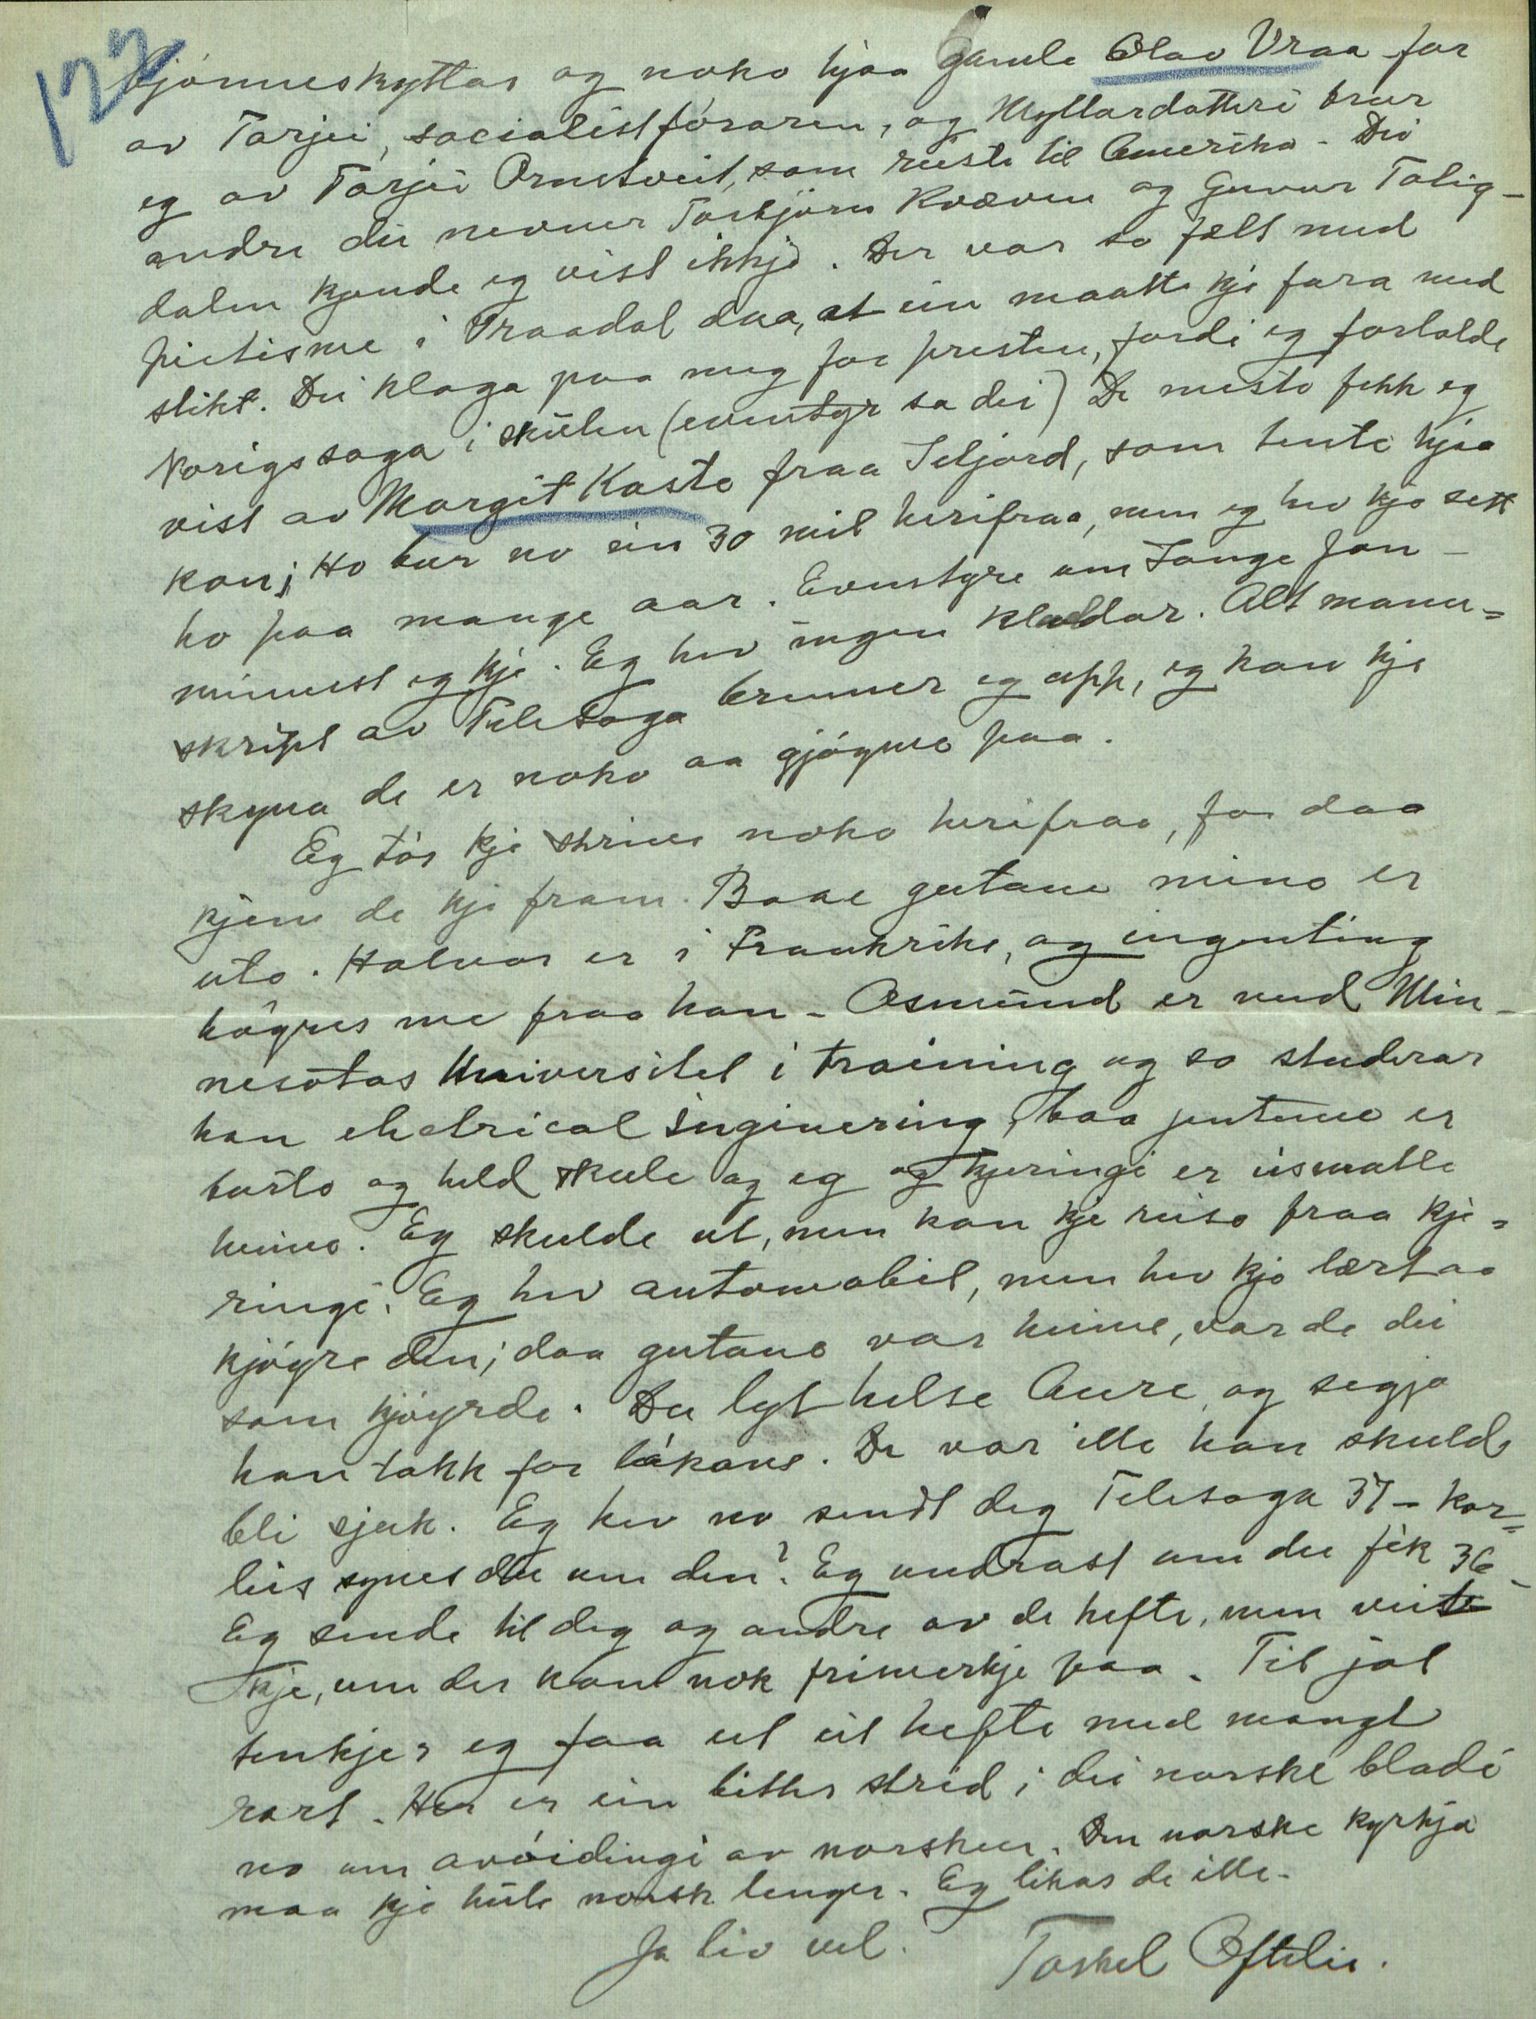 122
Bjönneskyttar og noko hjaa gamle Olav Vraa far
av Tarjei, socialistföraren, og Myllardotteri trur
eg av Tarjei Ornetveit, som reiste til Amerika - Dei
andre du nevner Torbjörn Kvæven og Gunnar Talig-
dalen kjende eg vist ikkje. Der var so fælt med
pietisme i Traadal daa, at ein maatte kje fara med
slikt. Dei klaga paa meg for presten, fordi eg fortalde
Norigssoga i skulen (eventyr sa dei) De meste fekk eg
vist av Margit Kaste fraa Seljord, som tente hjaa
kan; Ho bur no ein 30 mil herifraa, men eg hev kje sett
ho paa mange aar. Eventyre um Lange Jon -
minnest eg kje. Eg hev ingen kladdar. Alt manu=
skript av Telesoga brenner eg upp, eg kan kje
skyna de er noko aa gjöyme paa.
Eg tör kje skrive noko herifraa, for daa
kjem de kje fram. Baae gutane mine er
ute. Halvor er i Frankrike, og ingenting
höyres me fraa han - Osmund er ved Min-
nesotas Universitet i training og so studerar
han electrical inginering, baa jentune er
burte og held skule og eg og kjeringi er eismalle
heime. Eg skulde ut, men kan kje reise fraa kje=
ringi. Eg hev automobil, men hev kje lært aa
kjöyre den; daa gutane var heime, var de dei
som kjöyrde. Du lyt helse Aure og segja
han takk for bökane. De var ille han skulde
bli sjuk. Eg hev no sendt deg Telesoga 37 - kor=
leis synes du um den? Eg undrast um du fek 36 -
Eg sende til deg og andre av de hefte, men veit
kje, um der kom nok frimerkje paa. Til jol
tenkjer eg faa ut eit hefte med mangt
rart. Her er ein bitter strid i dei norske bladi
no um avöidingi av norsken. Den norske kyrkja
maa kje heite norsk lenger. Eg likas de ille -
Ja liv vel.
Torkel Oftelie.